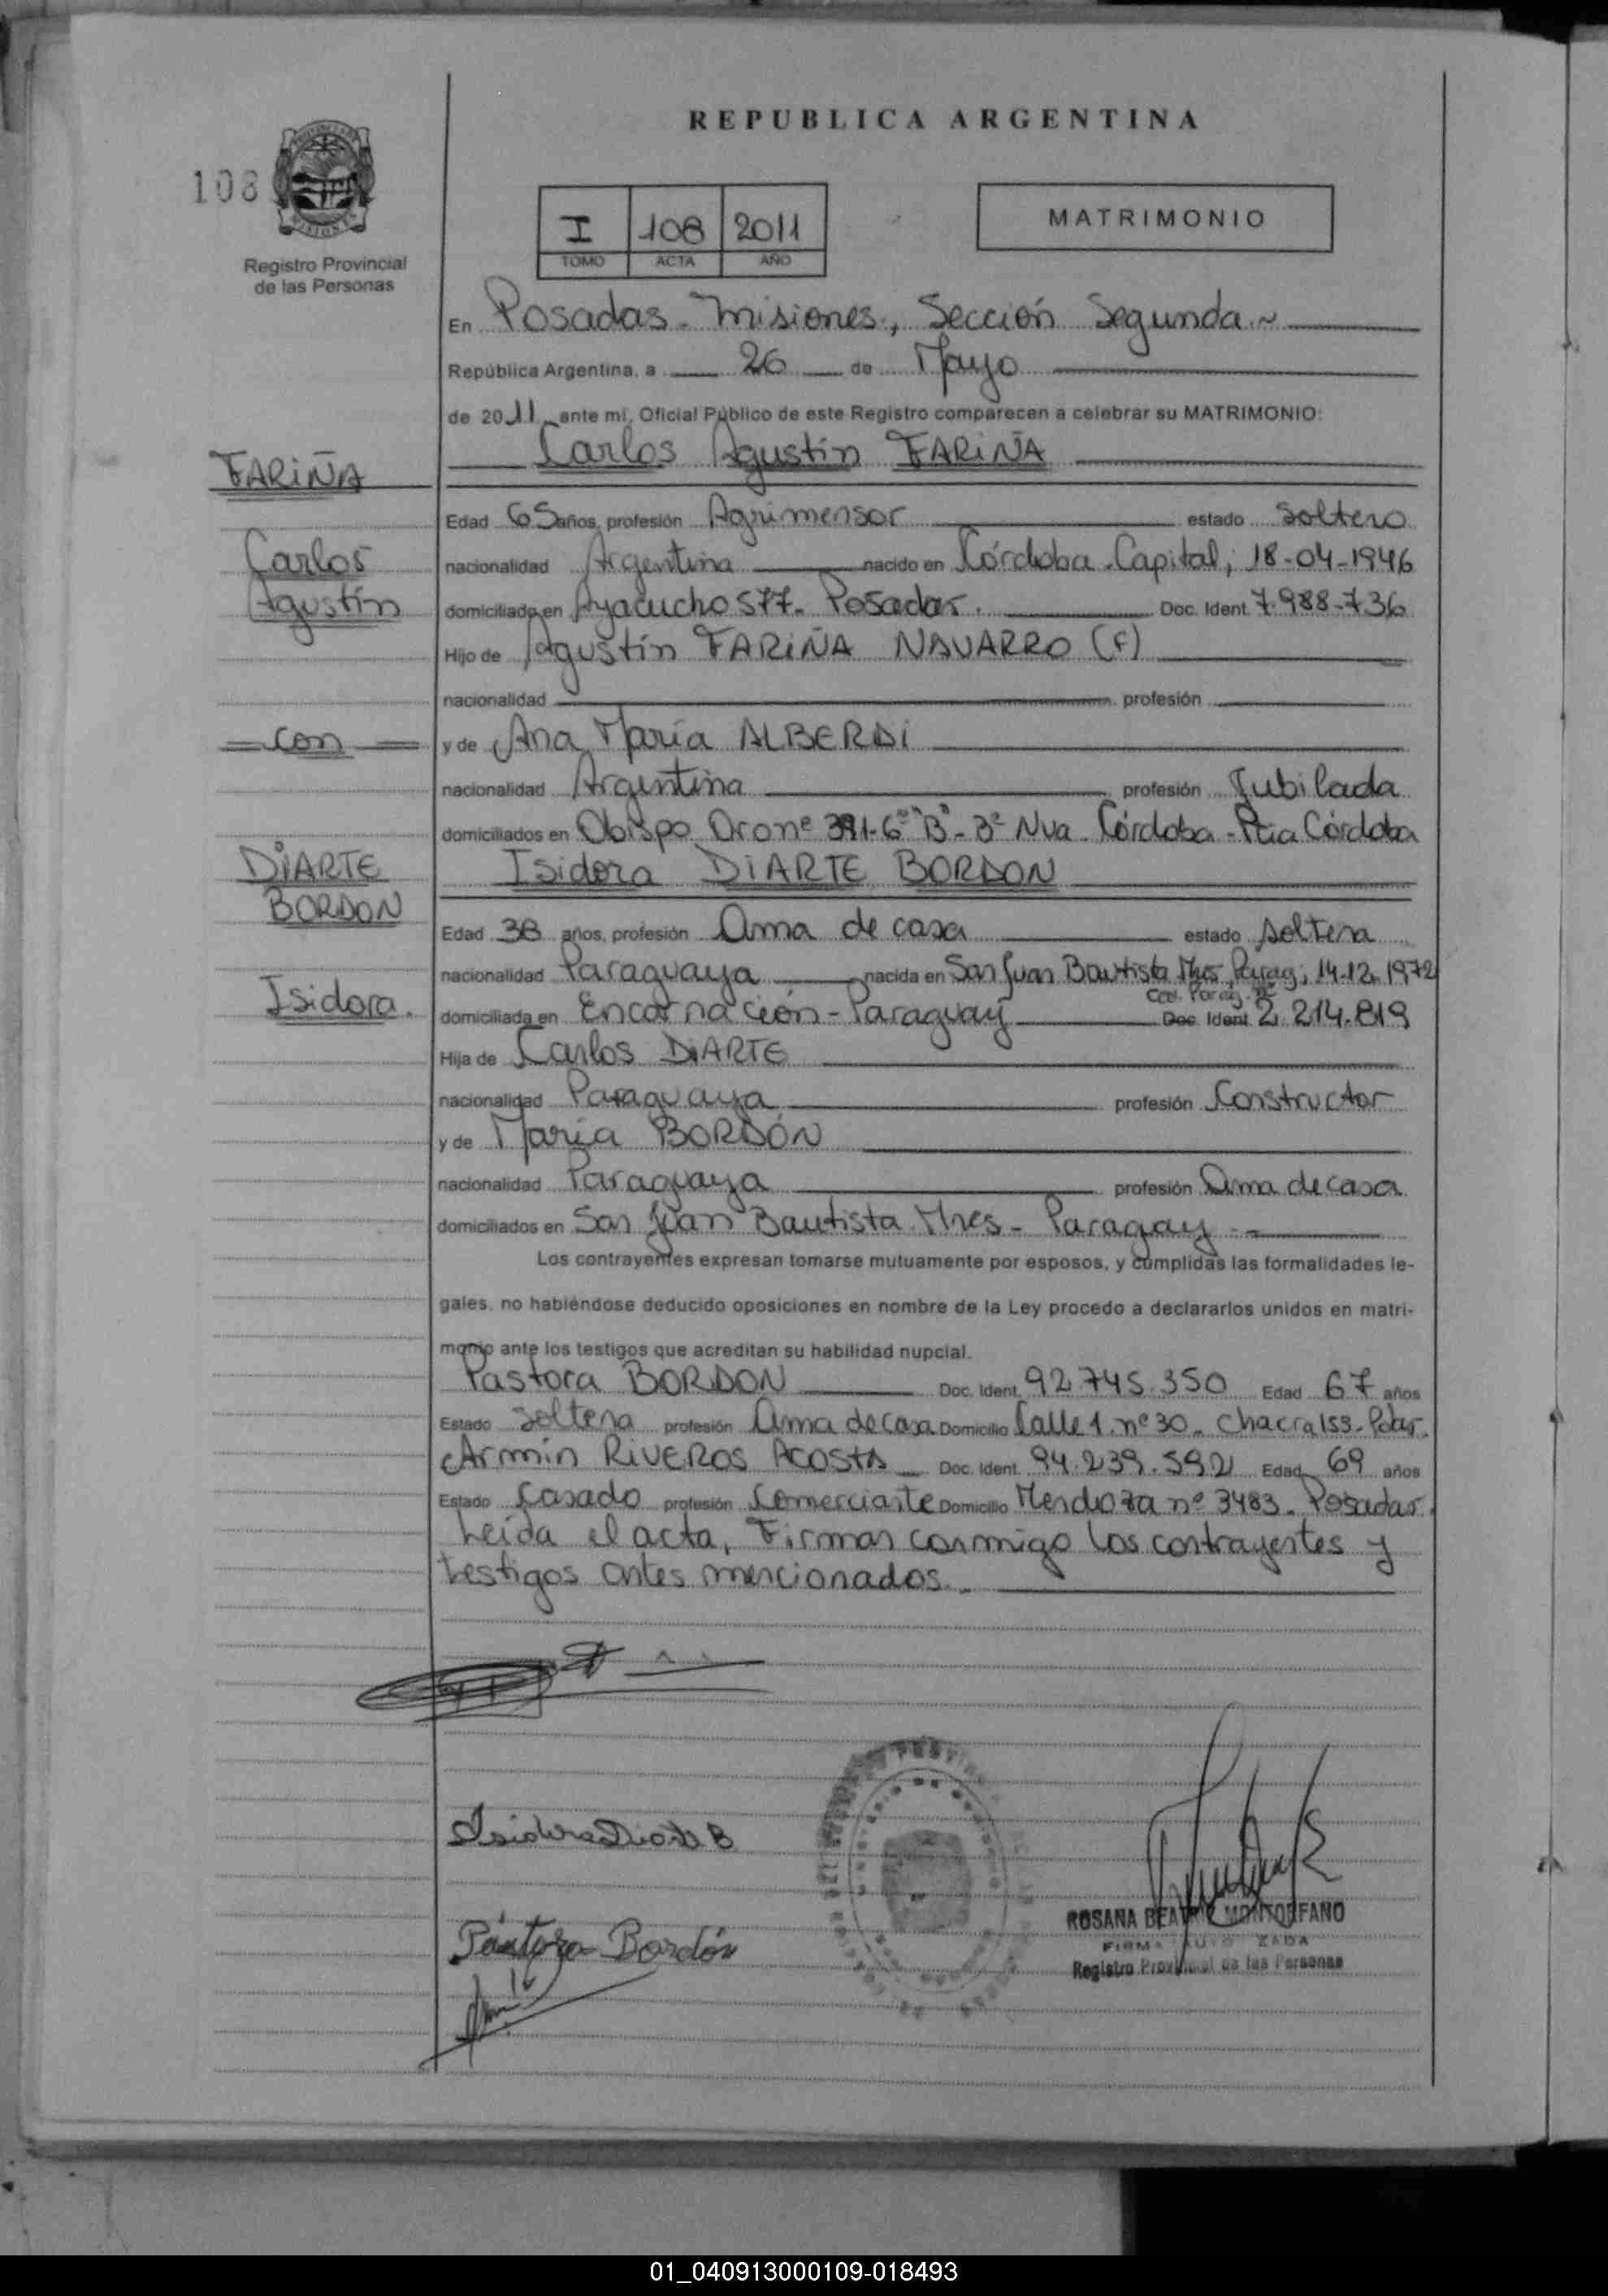 REPUBLICA ARGENTINA
108
Registro Provincial
de las Personas
I 108 2011
TOMO ACTA AÑO
MATRIMONIO
En Posadas - Misiones, Sección Segunda ~
República Argentina, a 26 de Mayo
de 2011 ante mí, Oficial Público de este Registro comparecen a celebrar su MATRIMONIO:
Carlos Agustín FARIÑA
FARIÑA
Edad 65 años, profesión Agrimensor estado soltero
Carlos
nacionalidad Argentina nacido en Córdoba - Capital; 18-04-1946
Agustín
domiciliado en Ayacucho 577 - Posadas. Doc. Ident. 7.988.736
Hijo de Agustín FARIÑA NAVARRO (f)
nacionalidad profesión
= con =
y de Ana María ALBERDI
nacionalidad Argentina profesión Jubilada
domiciliados en Obispo 391-6º "B" - Bº Nva. Córdoba - Pcia Córdoba
DIARTE
BORDON
Isidora DIARTE BORDON
Edad 38 años, profesión Ama de casa estado soltera
nacionalidad Paraguaya nacida en San Juan Bautista Mnes, Parag; 14-12-1972
Isidora.
Ced. Parag. nº
domiciliada en Encarnación - Paraguay Doc. Ident. 2.214.819
Hija de Carlos DIARTE
nacionalidad Paraguaya profesión Constructor
y de María BORDÓN
nacionalidad Paraguaya profesión Ama de casa
domiciliados en San Juan Bautista Mnes - Paraguay
Los contrayentes expresan tomarse mutuamente por esposos, y cumplidas las formalidades le-
gales, no habiéndose deducido oposiciones en nombre de la Ley procedo a declararlos unidos en matri-
monio ante los testigos que acreditan su habilidad nupcial.
Pastora BORDON Doc. Ident. 92.745.350 Edad 67 años
Estado soltera profesión Ama de casa Domicilio Calle 1. nº 30 - Chacra 153 - Pdas.
Armin RIVEROS ACOSTA Doc. Ident. 94.239.592 Edad 69 años
Estado Casado profesión Comerciante Domicilio Mendoza nº 3483 - Posadas.
Leída el acta, Firman conmigo los contrayentes y
testigos antes mencionados.
Isidora Diarte B
Pastora Bordón
ROSANA BEATRIZ MONTORFANO
FIRMA AUTORIZADA
Registro Provincial de las Personas
01_040913000109-018493